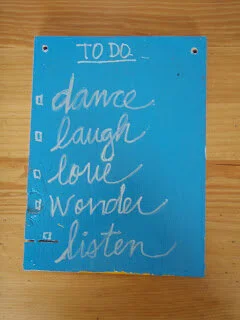 TO DO
dance
laugh
love
wonder
listen